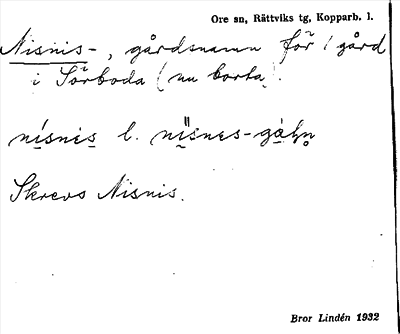 Ore sn, Rättviks tg, Kopparb. l.
Nisnis-, gårdsnamn för 1 gård
i Sörboda (nu borta).
nisnis l. nisnes-gäḥn
Skrevs Nisnis.
Bror Lindén 1932